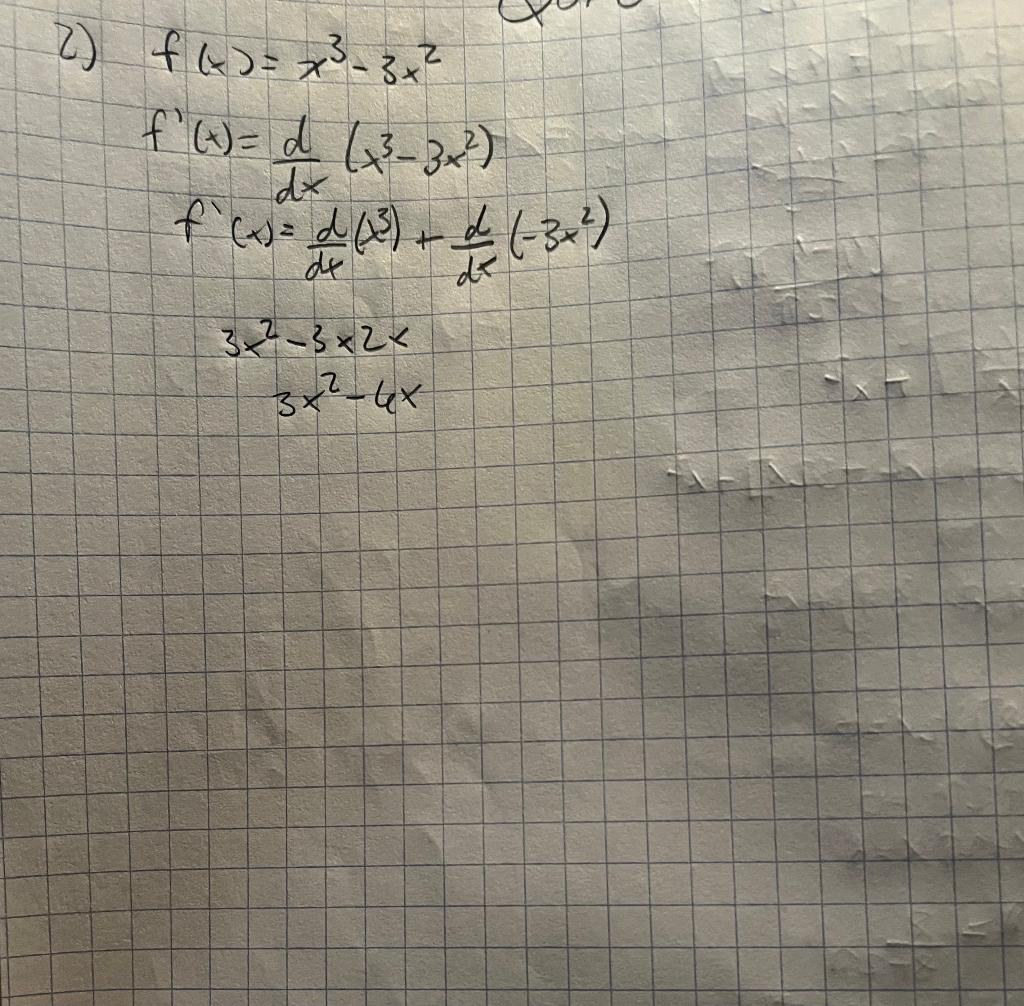 2) f(x) = x³ - 3x²
f'(x) = d/dx (x³ - 3x²)
f'(x) = d/dx (x³) + d/dx (-3x²)
3x² - 3 × 2x
3x² - 6x